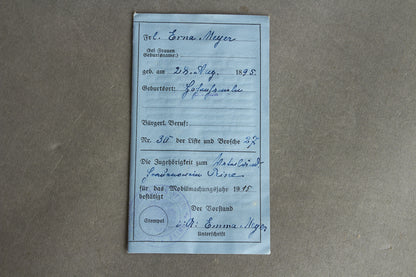 Frl. Erna Meyer
(bei Frauen
Geburtsname:)
geb. am 28. Aug. 1895.
Geburtsort:
Bürgerl. Beruf:
Nr. 30 der Liste und Brosche 27
Die Zugehörigkeit zum Vaterländ.
Frauenverein Peine
für das Mobilmachungsjahr 1915
bestätigt
Der Vorstand
Stempel
Emma Meyer
Unterschrift